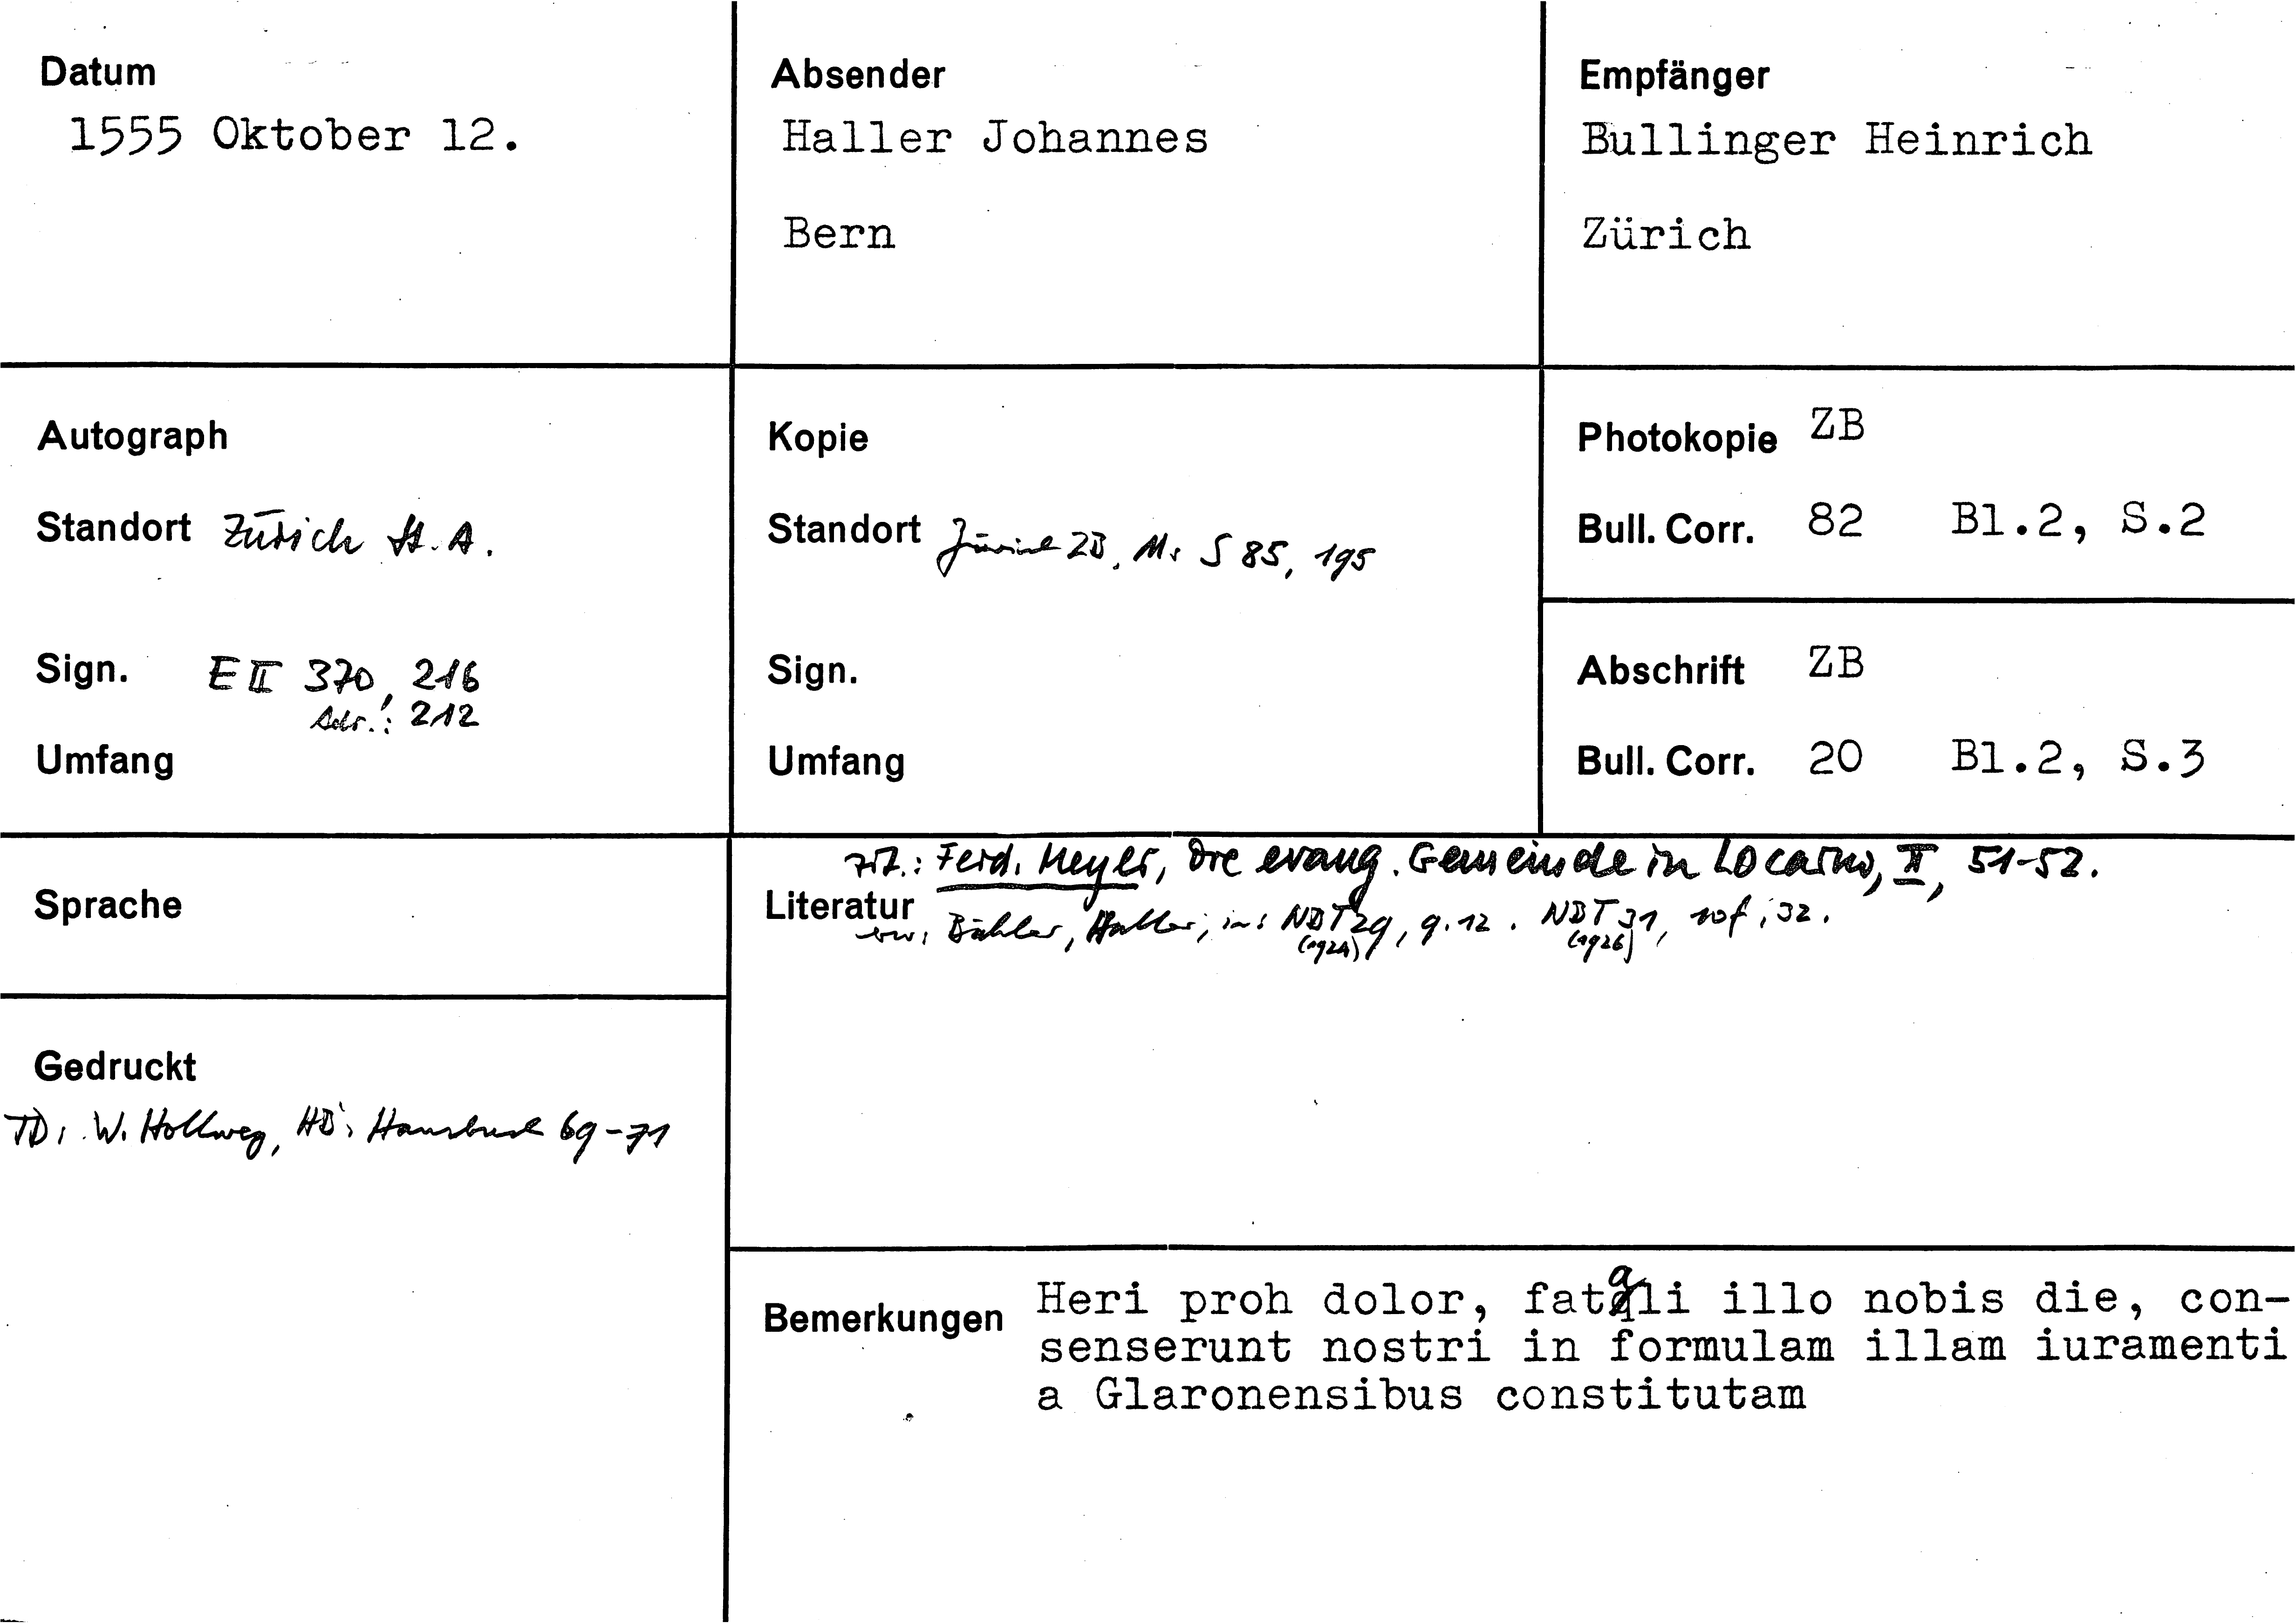 Datum
1555 Oktober 12.
Absender
Haller Johannes
Bern
Empfänger
Bullinger Heinrich
Zürich
Autograph
Standort Zürich St. A.
Sign. E II 370, 216
Adr.!: 212
Umfang
Kopie
Standort Zürich ZB, Ms S 85, 195
Sign.
Umfang
Photokopie ZB
Bull. Corr. 82 Bl.2, S.2
Abschrift ZB
Bull. Corr. 20 Bl.2, S.3
Sprache
Gedruckt
TD: W. Hollweg, HB's Hausbuch 69-71
zit.: Ferd. Meyer, Die evang. Gemeinde in Locarno, II, 51-52.
Literatur
Bähler, Haller, in: NBT 29, 9.12. NBT 31, 10f; 32.
(1924) (1926)
Bemerkungen Heri proh dolor, fatali illo nobis die, con-
senserunt nostri in formulam illam iuramenti
a Glaronensibus constitutam